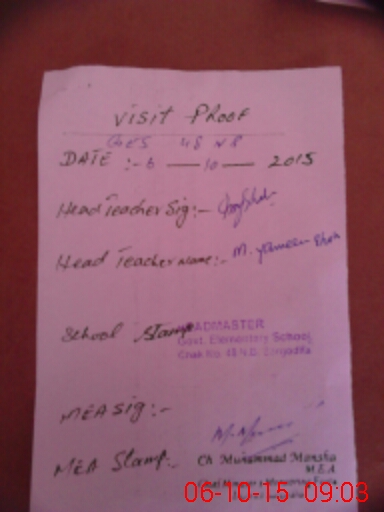 VISIT PROOF
GES 48 NB
DATE :- 6 — 10 — 2015
Head Teacher Sig:-
Head Teacher Name:- M. Yameen
School Stamp
HEADMASTER
Govt. Elementary School,
Chak No. 48 N.B. Sargodha
MEA Sig:-
MEA Stamp:- Ch Muhammad Mansha
M.E.A
06-10-15 09:03